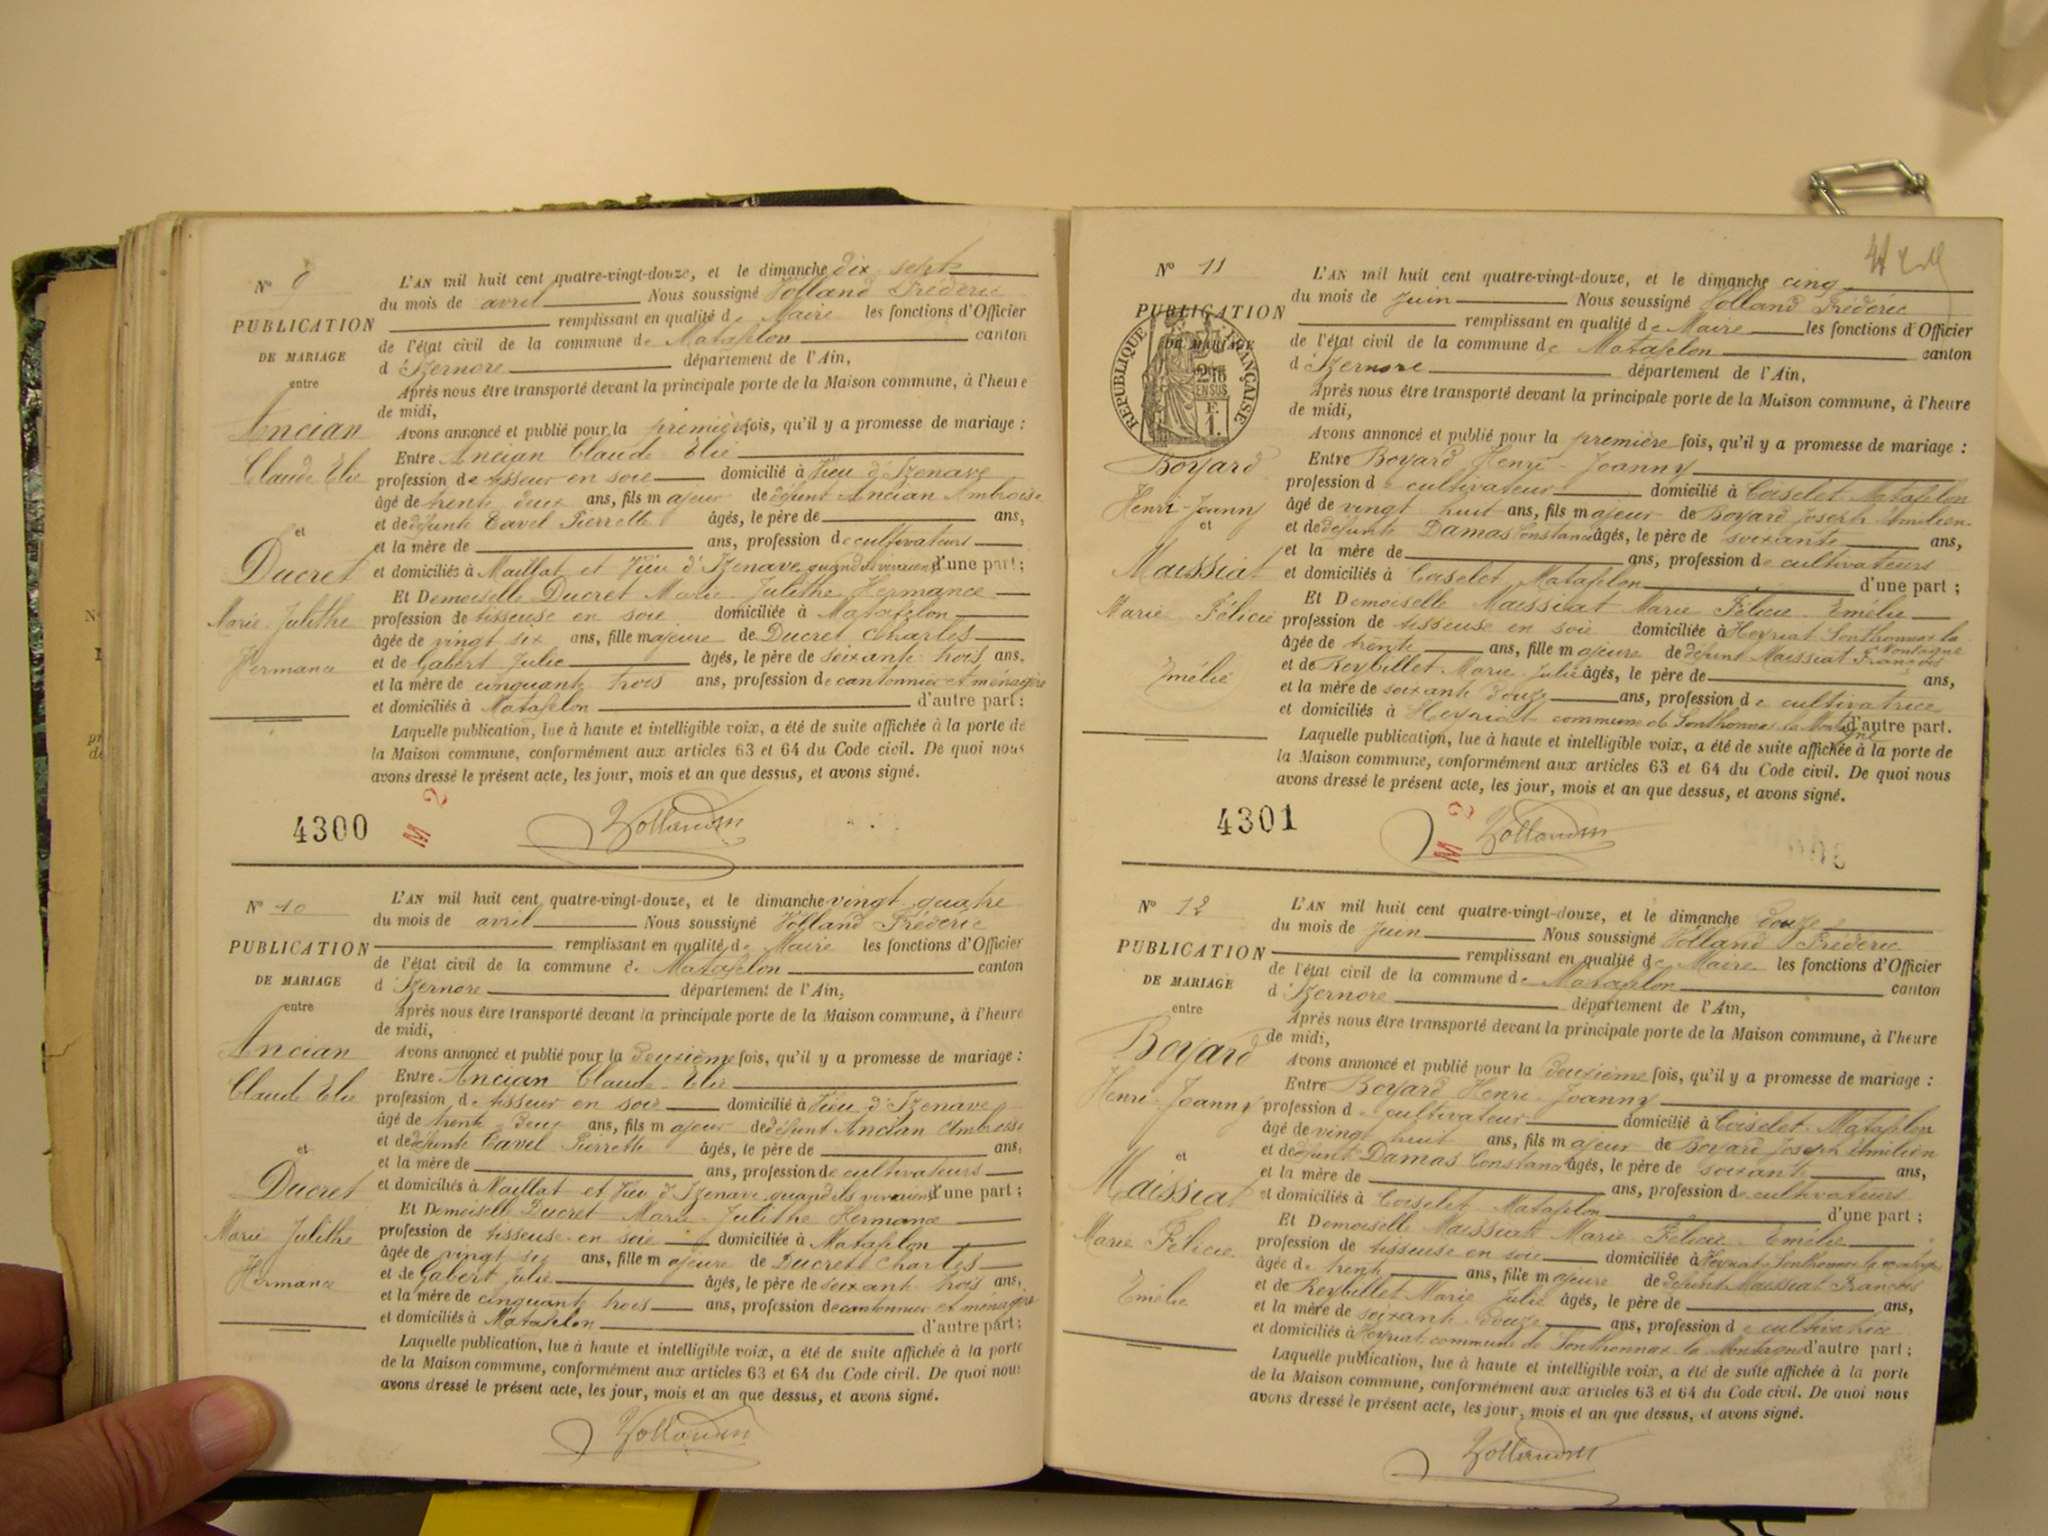 N° 9
PUBLICATION
DE MARIAGE
entre
Ancian
Claude Elie
et
Ducret
Marie Julithe
Hermance
L'AN mil huit cent quatre-vingt-douze, et le dimanche dix sept
du mois de avril Nous soussigné Volland Fréderic
remplissant en qualité de Maire les fonctions d'Officier
de l'état civil de la commune de Matafelon canton
d'Izernore département de l'Ain,
Après nous être transporté devant la principale porte de la Maison commune, à l'heure
de midi,
Avons annoncé et publié pour la première fois, qu'il y a promesse de mariage :
Entre Ancian Claude Elie
profession de tisseur en soie domicilié à Vieu d'Izenave
âgé de trente deux ans, fils majeur de défunt Ancian Ambroise
et de défunte Tavel Pierrette âgés, le père de ans,
et la mère de ans, profession de cultivateurs
et domiciliés à Maillat et Vieu d'Izenave quand ils vivaient d'une part ;
Et Demoiselle Ducret Marie Julithe Hermance
profession de tisseuse en soie domiciliée à Matafelon
âgée de vingt six ans, fille majeure de Ducret Charles
et de Gabert Julie âgés, le père de soixante trois ans,
et la mère de cinquante trois ans, profession de cantonnier et ménagère
et domiciliés à Matafelon d'autre part ;
Laquelle publication, lue à haute et intelligible voix, a été de suite affichée à la porte de
la Maison commune, conformément aux articles 63 et 64 du Code civil. De quoi nous
avons dressé le présent acte, les jour, mois et an que dessus, et avons signé.
4300
M 2
Vollandm
N° 10
PUBLICATION
DE MARIAGE
entre
Ancian
Claude Elie
et
Ducret
Marie Julithe
Hermance
L'AN mil huit cent quatre-vingt-douze, et le dimanche vingt quatre
du mois de avril Nous soussigné Volland Fréderic
remplissant en qualité de Maire les fonctions d'Officier
de l'état civil de la commune de Matafelon canton
d'Izernore département de l'Ain,
Après nous être transporté devant la principale porte de la Maison commune, à l'heure
de midi,
Avons annoncé et publié pour la deuxième fois, qu'il y a promesse de mariage :
Entre Ancian Claude Elie
profession de tisseur en soie domicilié à Vieu d'Izenave
âgé de trente deux ans, fils majeur de défunt Ancian Ambroise
et de défunte Tavel Pierrette âgés, le père de ans,
et la mère de ans, profession de cultivateurs
et domiciliés à Maillat et Vieu d'Izenave quand ils vivaient d'une part ;
Et Demoiselle Ducret Marie Julithe Hermance
profession de tisseuse en soie domiciliée à Matafelon
âgée de vingt six ans, fille majeure de Ducret Charles
et de Gabert Julie âgés, le père de soixante trois ans,
et la mère de cinquante trois ans, profession de cantonnier et ménagère
et domiciliés à Matafelon d'autre part ;
Laquelle publication, lue à haute et intelligible voix, a été de suite affichée à la porte
de la Maison commune, conformément aux articles 63 et 64 du Code civil. De quoi nous
avons dressé le présent acte, les jour, mois et an que dessus, et avons signé.
Vollandm
N° 11
PUBLICATION
DE MARIAGE
RÉPUBLIQUE FRANÇAISE
2/10
EN SUS
F.
1.
Boyard
Henri-Joanny
et
Maissiat
Marie Félicie
Emélie
L'AN mil huit cent quatre-vingt-douze, et le dimanche cinq
du mois de juin Nous soussigné Volland Fréderic
remplissant en qualité de Maire les fonctions d'Officier
de l'état civil de la commune de Matafelon canton
d'Izernore département de l'Ain,
Après nous être transporté devant la principale porte de la Maison commune, à l'heure
de midi,
Avons annoncé et publié pour la première fois, qu'il y a promesse de mariage :
Entre Boyard Henri-Joanny
profession de cultivateur domicilié à Coiselet Matafelon
âgé de vingt huit ans, fils majeur de Boyard Joseph Emilien
et de défunte Damas Constance âgés, le père de soixante ans,
et la mère de ans, profession de cultivateurs
et domiciliés à Coiselet Matafelon d'une part ;
Et Demoiselle Maissiat Marie Félicie Emélie
profession de tisseuse en soie domiciliée à Heyriat Sonthonnax la
Montagne
âgée de trente ans, fille majeure de défunt Maissiat François
et de Reybillet Marie Julie âgés, le père de ans,
et la mère de soixante douze ans, profession de cultivatrice
et domiciliés à Heyriat commune de Sonthonnax la Montagne d'autre part.
Laquelle publication, lue à haute et intelligible voix, a été de suite affichée à la porte de
la Maison commune, conformément aux articles 63 et 64 du Code civil. De quoi nous
avons dressé le présent acte, les jour, mois et an que dessus, et avons signé.
4301
M 2
Vollandm
N° 12
PUBLICATION
DE MARIAGE
entre
Boyard
Henri-Joanny
et
Maissiat
Marie Félicie
Emélie
L'AN mil huit cent quatre-vingt-douze, et le dimanche douze
du mois de juin Nous soussigné Volland Fréderic
remplissant en qualité de Maire les fonctions d'Officier
de l'état civil de la commune de Matafelon canton
d'Izernore département de l'Ain,
Après nous être transporté devant la principale porte de la Maison commune, à l'heure
de midi,
Avons annoncé et publié pour la deuxième fois, qu'il y a promesse de mariage :
Entre Boyard Henri-Joanny
profession de cultivateur domicilié à Coiselet Matafelon
âgé de vingt huit ans, fils majeur de Boyard Joseph Emilien
et de défunte Damas Constance âgés, le père de soixante ans,
et la mère de ans, profession de cultivateurs
et domiciliés à Coiselet Matafelon d'une part ;
Et Demoiselle Maissiat Marie Félicie Emélie
profession de tisseuse en soie domiciliée à Heyriat Sonthonnax la montagne
âgée de trente ans, fille majeure de défunt Maissiat François
et de Reybillet Marie Julie âgés, le père de ans,
et la mère de soixante douze ans, profession de cultivatrice
et domiciliés à Heyriat commune de Sonthonnax la Montagne d'autre part ;
Laquelle publication, lue à haute et intelligible voix, a été de suite affichée à la porte
de la Maison commune, conformément aux articles 63 et 64 du Code civil. De quoi nous
avons dressé le présent acte, les jour, mois et an que dessus, et avons signé.
Vollandm